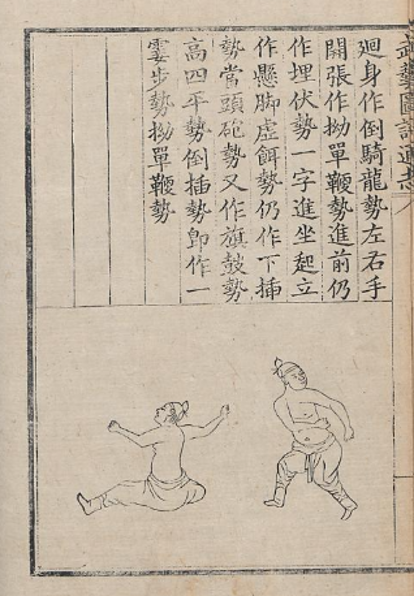 武藝圖譜通志
廻身作倒騎龍勢左右手
開張作拗單鞭勢進前仍
作埋伏勢一字進坐起立
作懸脚虛餌勢仍作下揷
勢當頭砲勢又作旗鼓勢
高四平勢倒揷勢卽作一
霎步勢拗單鞭勢